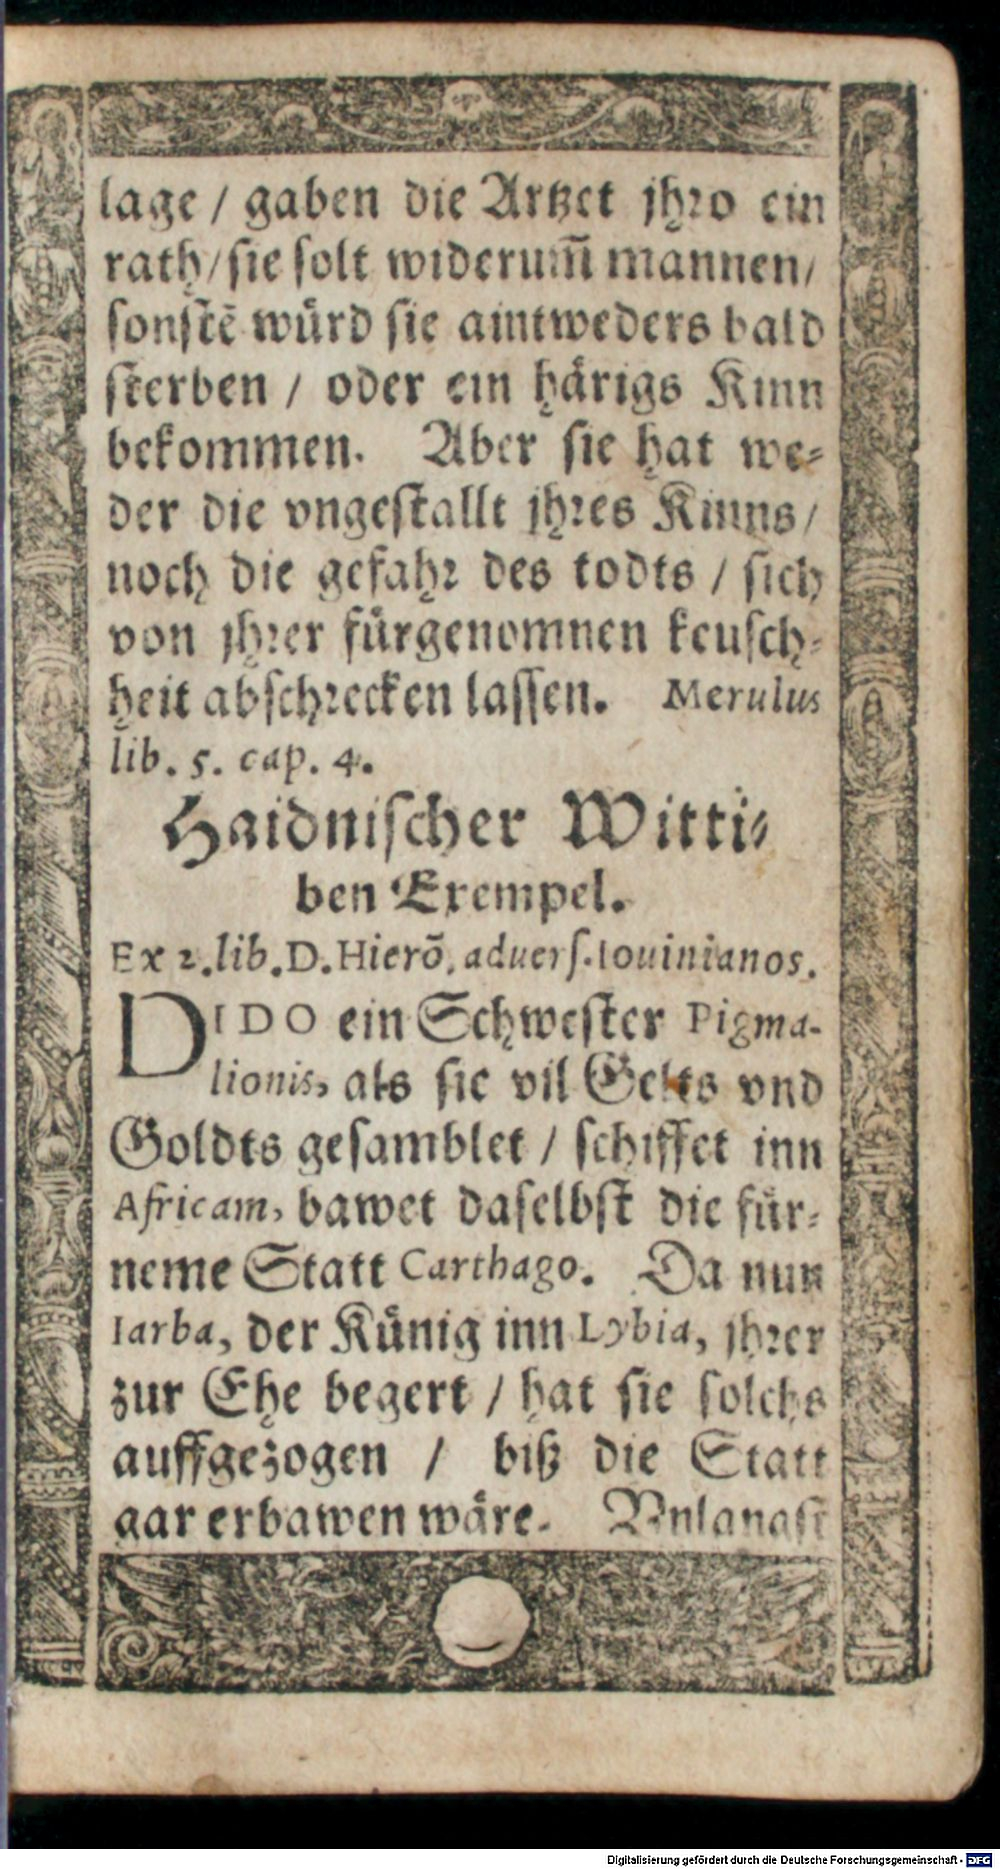 lage / gaben die Artzet jhro ein
rath / sie solt widerum̃ mannen /
sonstẽ wuͤrd sie aintweders bald
sterben / oder ein haͤrigs Kinn
bekommen. Aber sie hat we-
der die vngestallt jhres Kinns /
noch die gefahr des todts / sich
von jhrer fuͤrgenomnen keusch-
heit abschrecken lassen. Merulus
lib. 5. cap. 4.
Haidnischer Witti-
ben Exempel.
Ex 2. lib. D. Hierõ. aduers. Iouinianos.
DIDO ein Schwester Pigma-
lionis, als sie vil Gelts vnd
Goldts gesamblet / schiffet inn
Africam, bawet daselbst die fuͤr-
neme Statt Carthago. Da nun
Iarba, der Kuͤnig inn Lybia, jhrer
zur Ehe begert / hat sie solchs
auffgezogen / biß die Statt
gar erbawen waͤre. Vnlangst
Digitalisierung gefördert durch die Deutsche Forschungsgemeinschaft - DFG